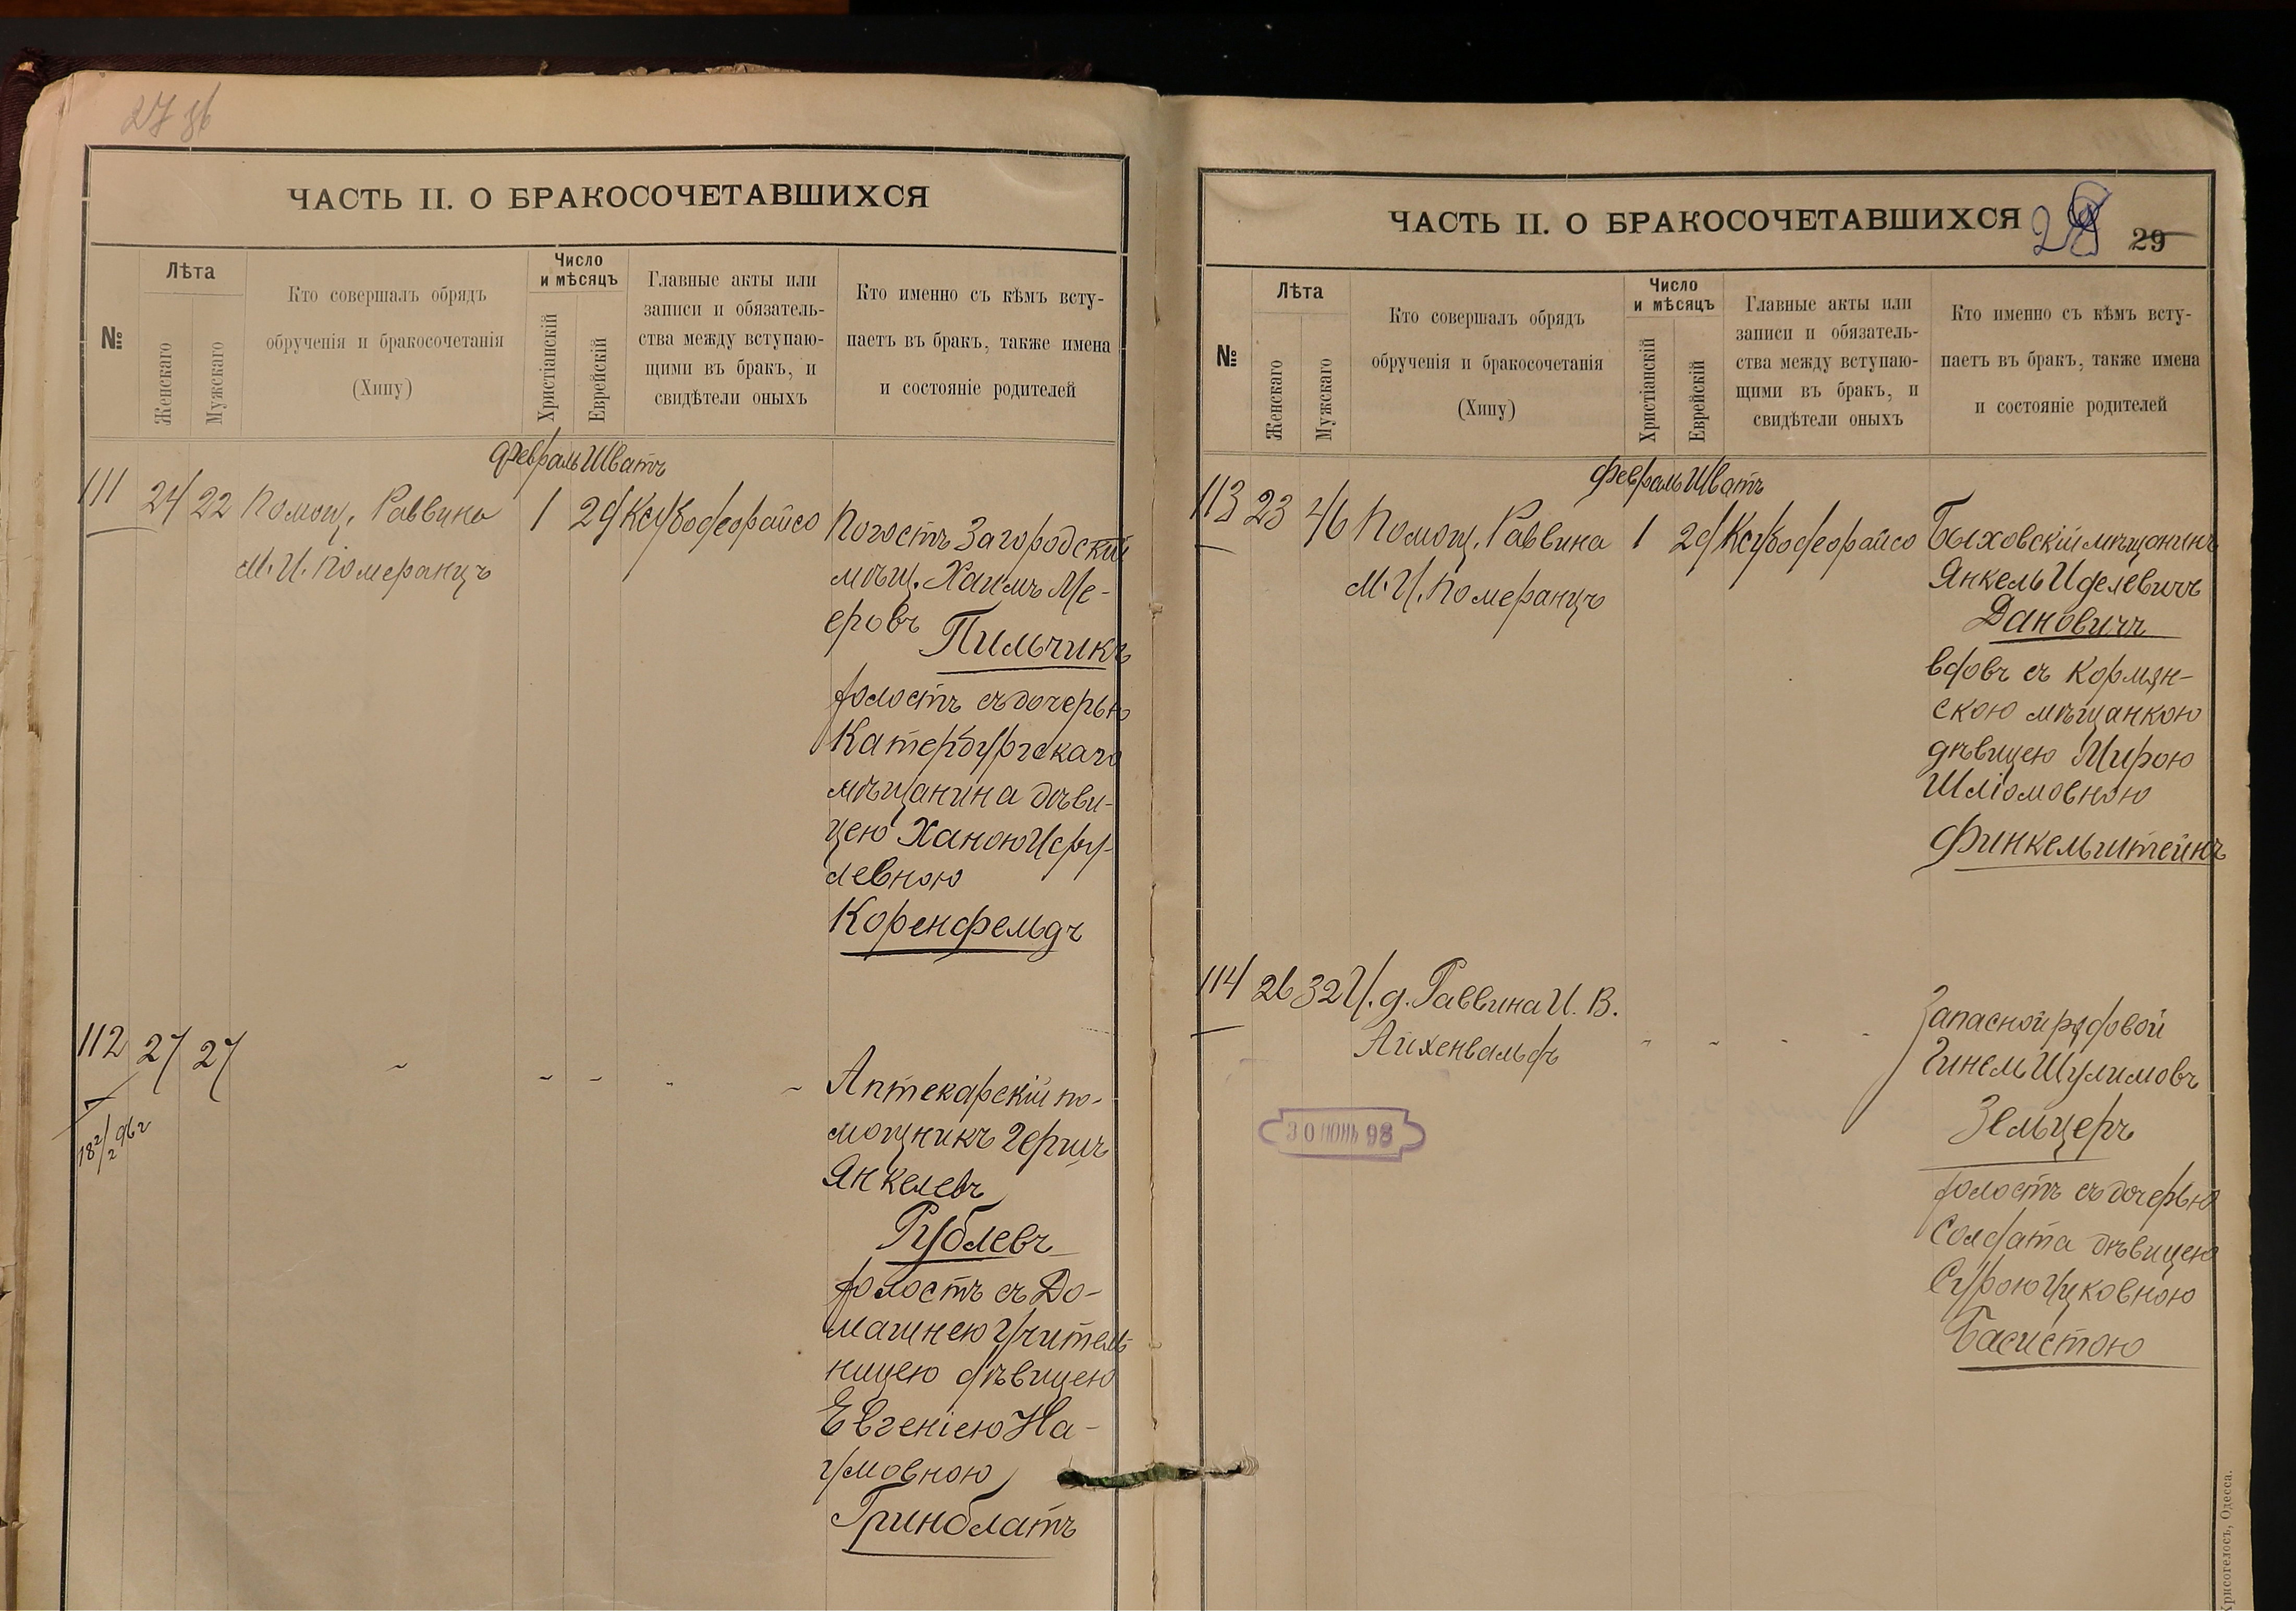 27 об
ЧАСТЬ II. О БРАКОСОЧЕТАВШИХСЯ
№
Лѣта
Женскаго
Мужскаго
Кто совершалъ обрядъ
обрученія и бракосочетанія
(Хипу)
Число
и мѣсяцъ
Христіанскій
Еврейскій
Главные акты или
записи и обязатель-
ства между вступаю-
щими въ бракъ, и
свидѣтели оныхъ
Кто именно съ кѣмъ всту-
паетъ въ бракъ, также имена
и состояніе родителей
Февраль Шватъ
111 24 22 Помощ. Раввина 1 29 Ксубодеорайсо
М. И. Померанцъ
Погостъ Загородскій
мѣщ. Хаимъ Ме-
еровъ
Пильчикъ
холостъ съ дочерью
Катербургскаго
мѣщанина дѣви-
цею Ханою Исру-
левною
Коренфельдъ
112 27 27 - - - - -
18 2/2 96 г
Аптекарскій по-
мощникъ Гершъ
Янкелевъ
Рублевъ
холостъ съ До-
машнею Учитель
ницею дѣвицею
Евгеніею На-
умовною
Гринблатъ
ЧАСТЬ II. О БРАКОСОЧЕТАВШИХСЯ
28
29
№
Лѣта
Женскаго
Мужскаго
Кто совершалъ обрядъ
обрученія и бракосочетанія
(Хипу)
Число
и мѣсяцъ
Христіанскій
Еврейскій
Главные акты или
записи и обязатель-
ства между вступаю-
щими въ бракъ, и
свидѣтели оныхъ
Кто именно съ кѣмъ всту-
паетъ въ бракъ, также имена
и состояніе родителей
Февраль Шватъ
113 23 46 Помощ. Раввина 1 29 Ксубодеорайсо
М. И. Померанцъ
Быховскій мѣщанинъ
Янкель Иделевичъ
Дановичъ
вдовъ съ Кормян-
скою мѣщанкою
дѣвицею Мирою
Шліомовною
Финкельштейнъ
114 26 32 И. д. Раввина И. В.
Айхенвальдъ - - - -
30 ІЮНЬ 98
Запасной рядовой
Гинель Шулимовъ
Зельцеръ
холостъ съ дочерью
Солдата дѣвицею
Сурою Ицковною
Басистою
Хрисогелосъ, Одесса.